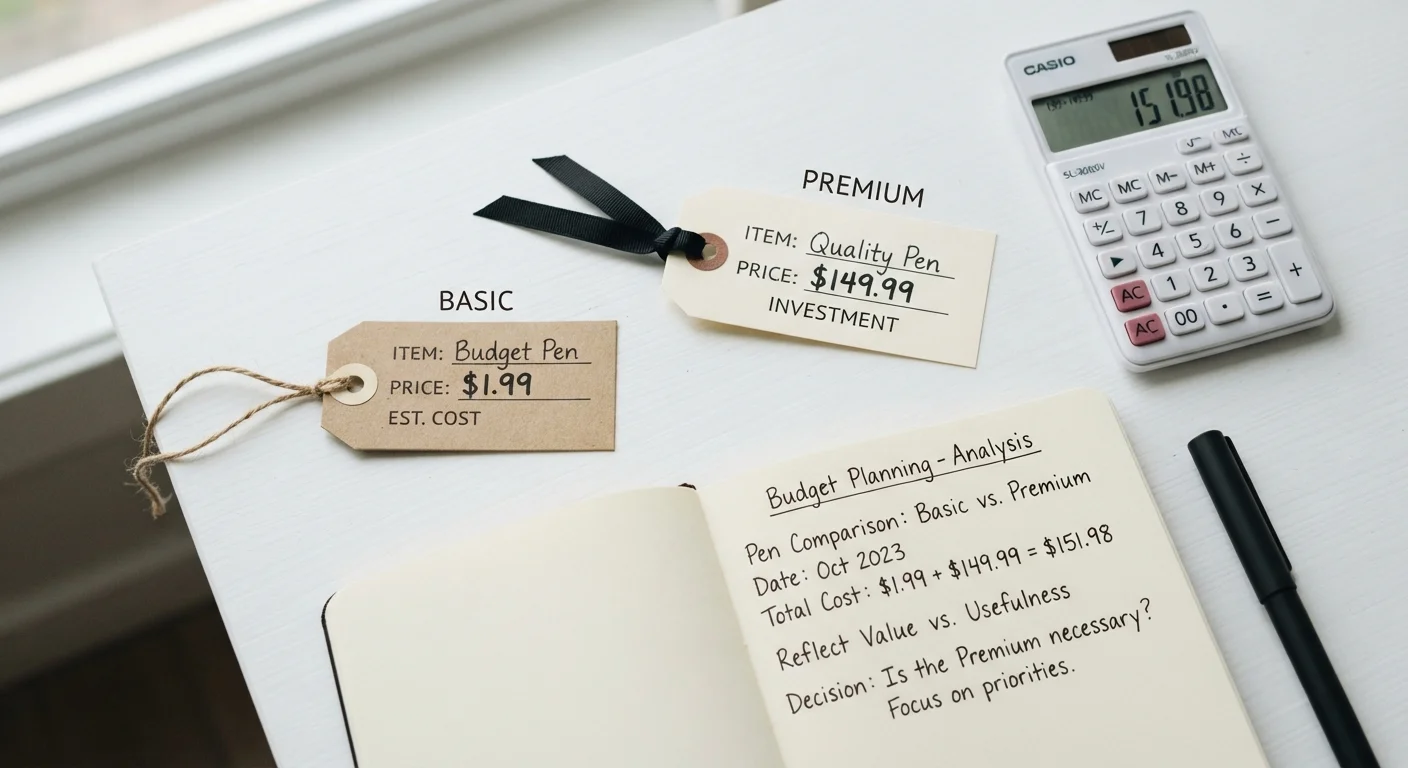 BASIC
ITEM: Budget Pen
PRICE: $1.99
EST. COST
PREMIUM
ITEM: Quality Pen
PRICE: $149.99
INVESTMENT
CASIO
151.98
MC MC M- M+ ÷
√ MC
+/- 7 8 9 ×
▶ 4 5 6 −
AC 1 2 3 +
AC 00 · =
Budget Planning - Analysis
Pen Comparison: Basic vs. Premium
Date: Oct 2023
Total Cost: $1.99 + $149.99 = $151.98
Reflect Value vs. Usefulness
Decision: Is the Premium necessary?
Focus on priorities.